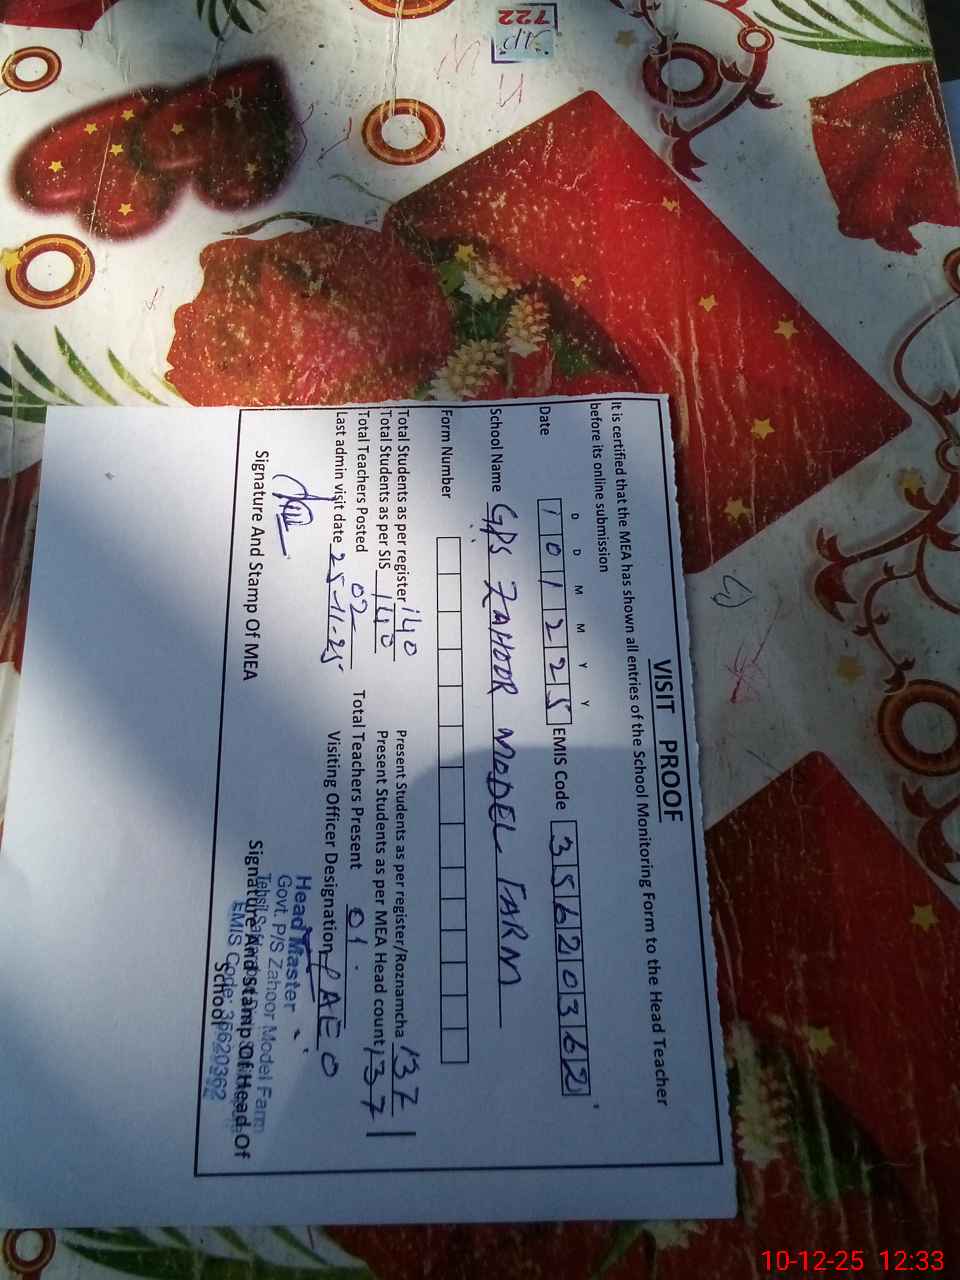 VISIT PROOF
It is certified that the MEA has shown all entries of the School Monitoring Form to the Head Teacher
before its online submission
D D M M Y Y
Date 1 0 1 2 2 5 EMIS Code 3 5 6 2 0 3 6 2
School Name GPS ZAHOOR MODEL FARM
Form Number
Total Students as per register 140 Present Students as per register/Roznamcha 137
Total Students as per SIS 140 Present Students as per MEA Head count 137
Total Teachers Posted 02 Total Teachers Present 01
Last admin visit date 25-11-25 Visiting Officer Designation AEO
Signature And Stamp Of MEA
Signature And Stamp Of Head Of
School
Head Master
Govt. P/S Zahoor Model Farm
EMIS Code: 35620362
722
10-12-25 12:33